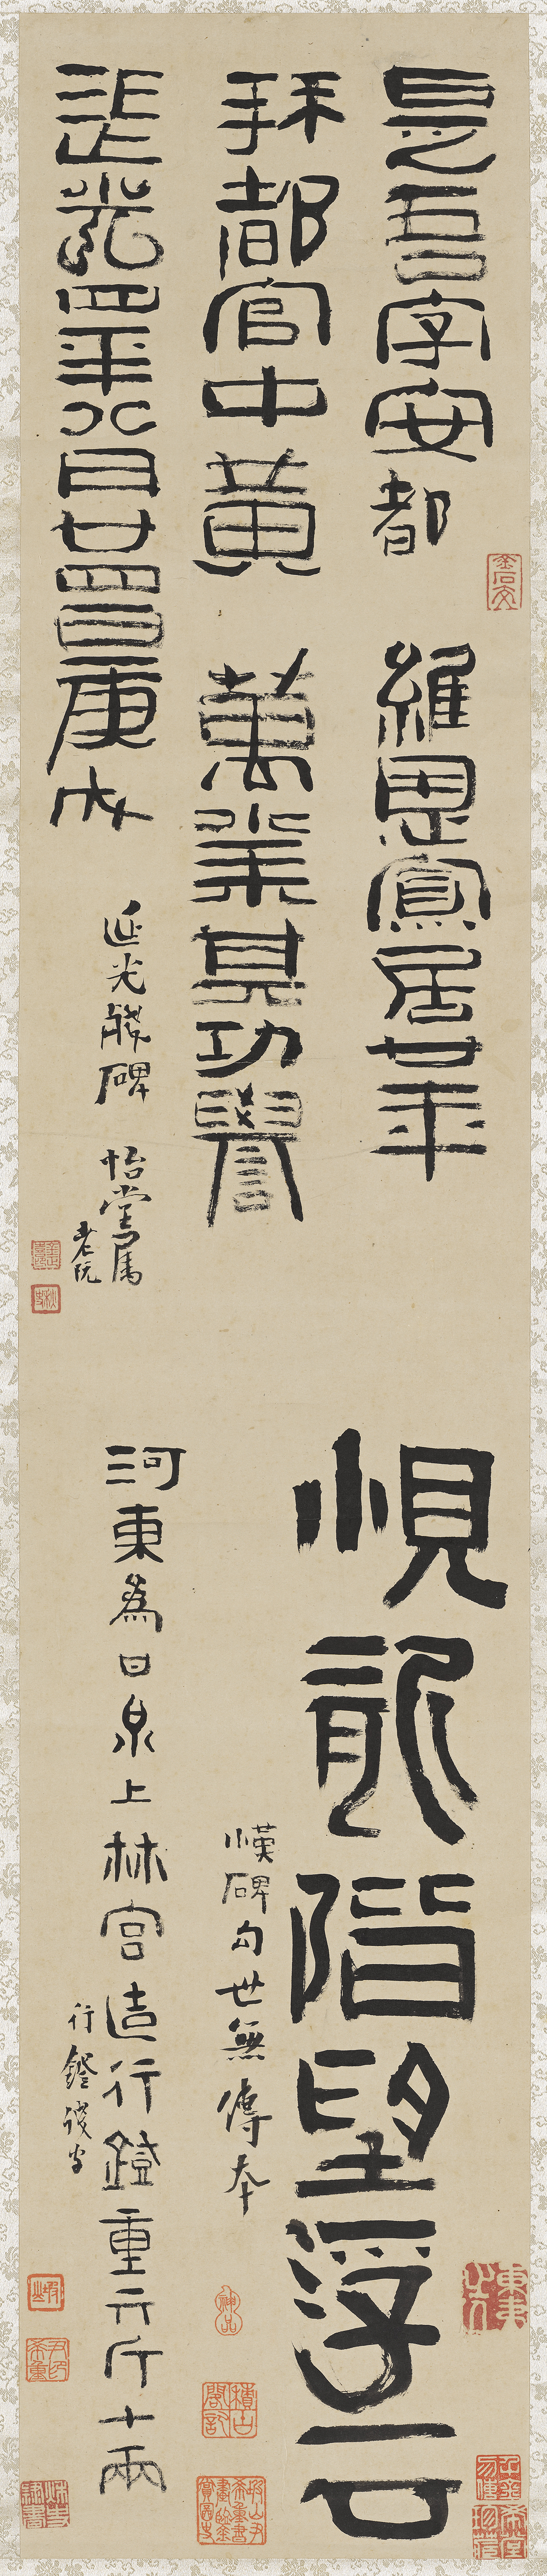 是吾字安都　維恩寬居廿年
拜都官中黃　萬業其功譽
延光四年八月廿四日庚戌
延光殘碑　怡堂屬
老阮
悓龍階望浮云
漢碑句世無傳本
河東爲甘泉上林宮造行鐙重六斤十兩
行鐙殘字